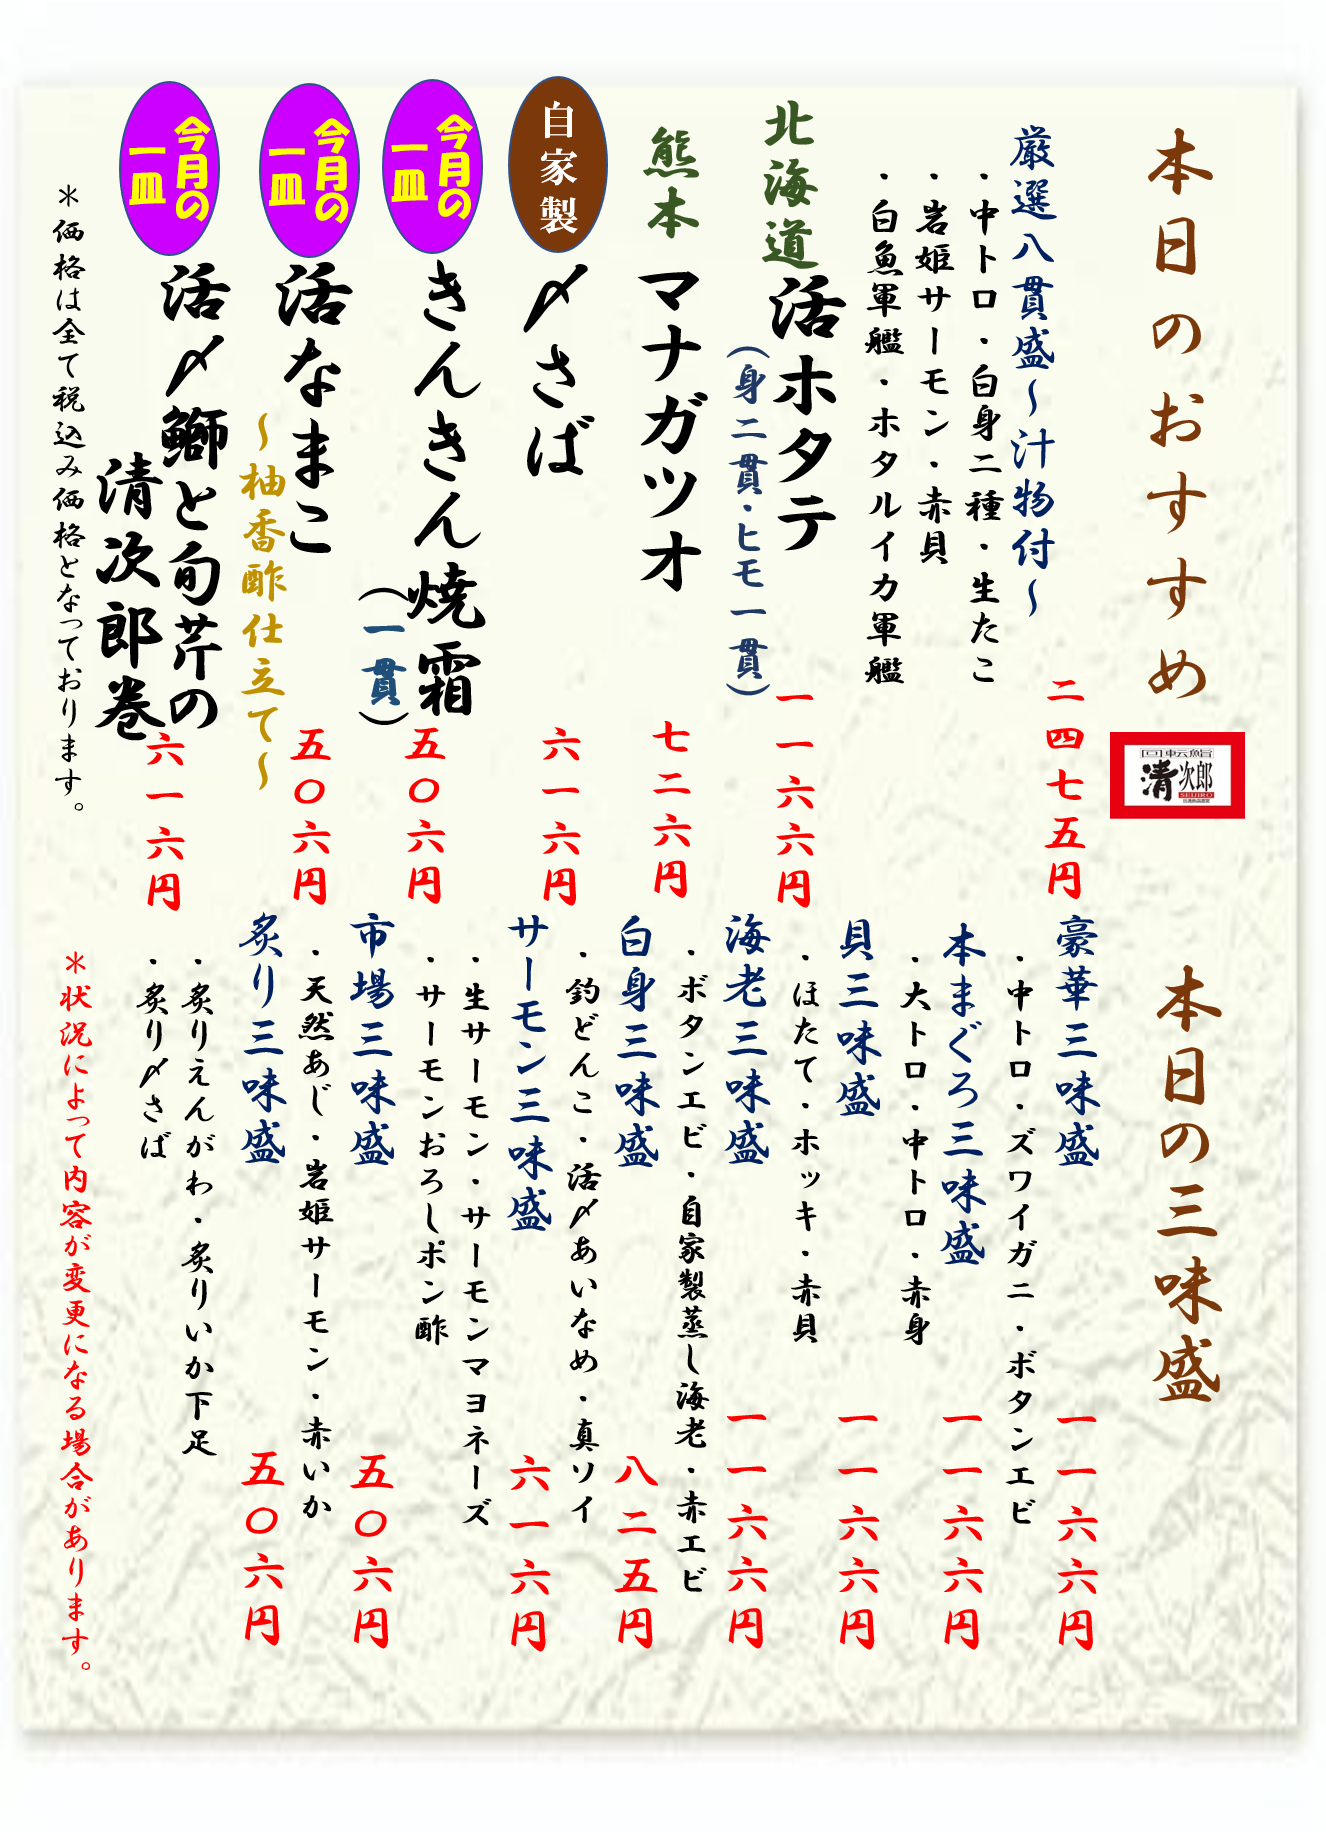 本日のおすすめ
回転鮨
清次郎
SEIJIRO
厳選八貫盛~汁物付~
二四七五円
・中トロ・白身二種・生たこ
・岩姫サーモン・赤貝
・白魚軍艦・ホタルイカ軍艦
北海道
活ホタテ
(身二貫・ヒモ一貫)
一一六六円
熊本
マナガツオ
七二六円
自家製
〆さば
六一六円
今月の
一皿
きんきん焼霜
(一貫)
五〇六円
今月の
一皿
活なまこ
~柚香酢仕立て~
五〇六円
今月の
一皿
活〆鰤と旬芹の
清次郎巻
六一六円
*価格は全て税込み価格となっております。
本日の三味盛
豪華三味盛
一一六六円
・中トロ・ズワイガニ・ボタンエビ
本まぐろ三味盛
一一六六円
・大トロ・中トロ・赤身
貝三味盛
一一六六円
・ほたて・ホッキ・赤貝
海老三味盛
一一六六円
・ボタンエビ・自家製蒸し海老・赤エビ
白身三味盛
八二五円
・釣どんこ・活〆あいなめ・真ソイ
サーモン三味盛
六一六円
・生サーモン・サーモンマヨネーズ
・サーモンおろしポン酢
市場三味盛
五〇六円
・天然あじ・岩姫サーモン・赤いか
炙り三味盛
五〇六円
・炙りえんがわ・炙りいか下足
・炙り〆さば
*状況によって内容が変更になる場合があります。